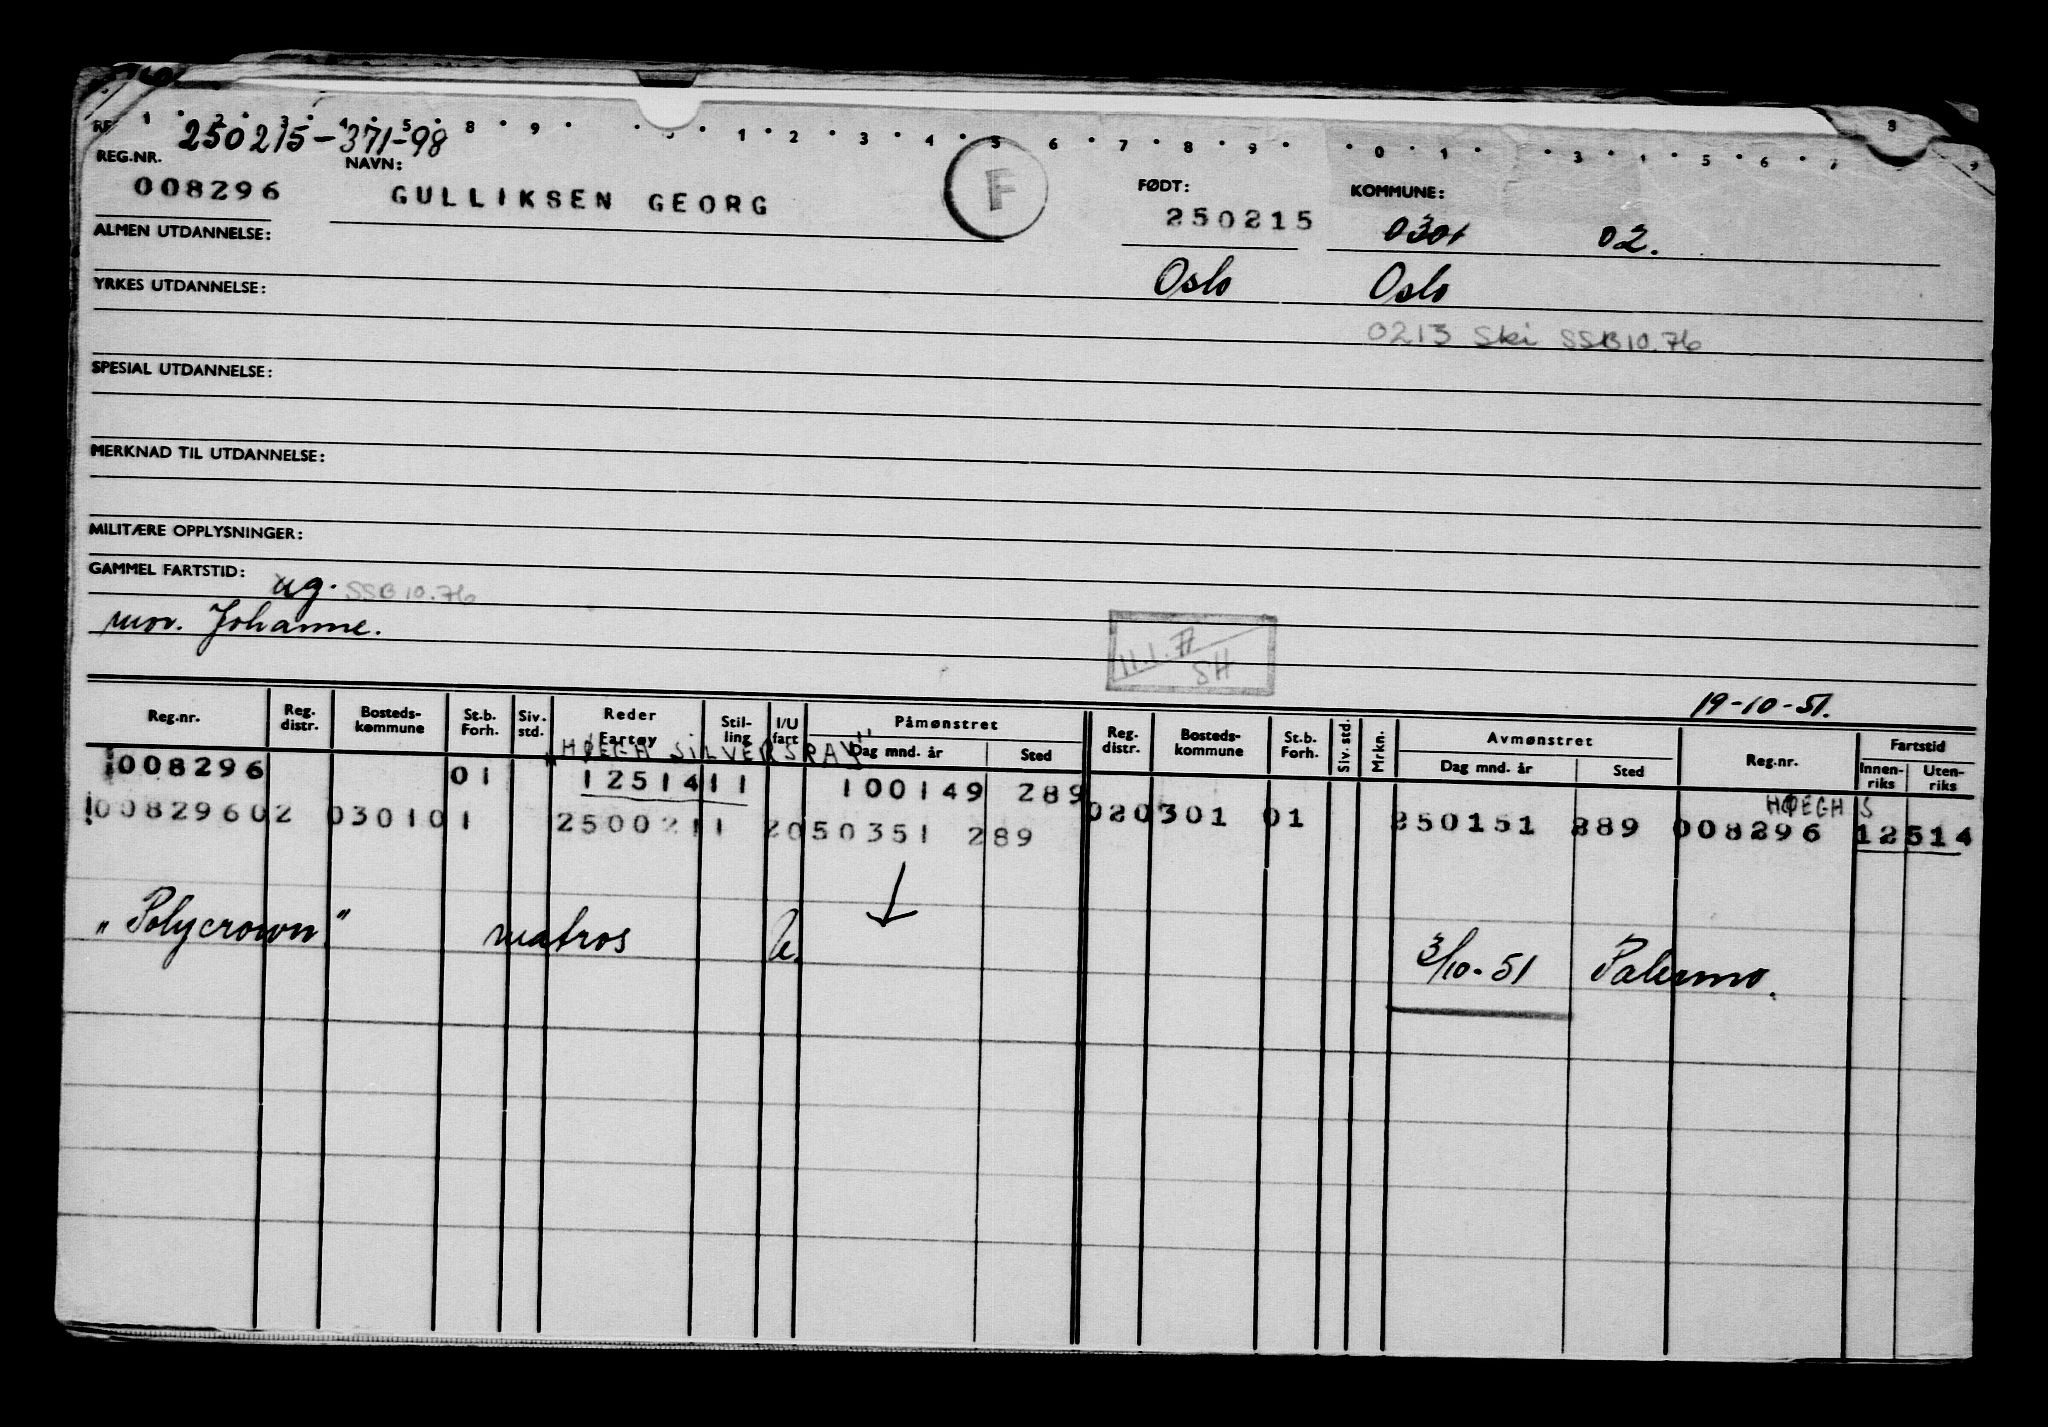 250215-371-98
REG.NR.
NAVN:
FØDT:
KOMMUNE:
008296
GULLIKSEN GEORG
F
250215
0301 02.
ALMEN UTDANNELSE:
Oslo
Oslo
YRKES UTDANNELSE:
0213 Ski SSB10.76
SPESIAL UTDANNELSE:
MERKNAD TIL UTDANNELSE:
MILITÆRE OPPLYSNINGER:
GAMMEL FARTSTID:
ug. SSB10.76
mor. Johanne.
11.1.77
SH
19-10-51.
Reg.nr. Reg. distr. Bosteds-kommune St.b. Forh. Siv. std. Reder Fartøy Stil-ling I/U fart Påmønstret Dag mnd. år Sted Reg. distr. Bosteds-kommune St.b. Forh. Siv. std. Mrkn. Avmønstret Dag mnd. år Sted Reg.nr. Fartstid Innen-riks Uten-riks
"HØEGH SILVERSRAY"
008296 01 1251411 100149 289
HØEGH S
020301 01 250151 289 008296 12514
00829602 030101 2500211 2050351 289
"Polycrown" matros U. 3/10-51 Palermo.